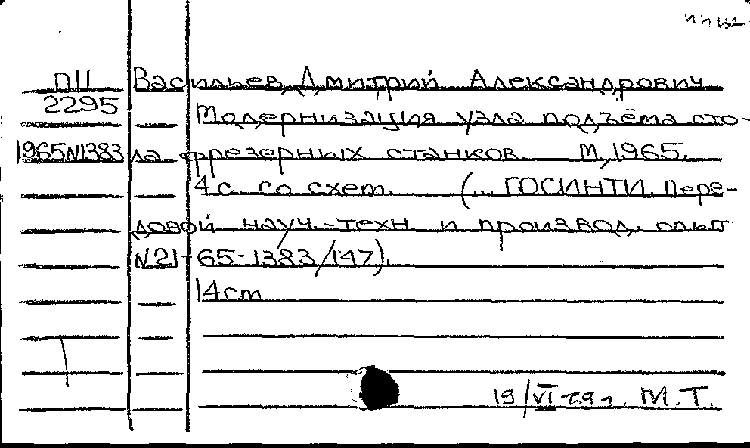 П11 Васильев, Дмитрий Александрович
2295 Модернизация узла подъёма сто-
1965N1383 ла фрезерных станков. М, 1965.
4с. со схем. (... ГОСИНТИ. Пере-
довой науч.-техн. и производ. опыт
N21-65-1383/147).
14ст
19/VI М.Т.